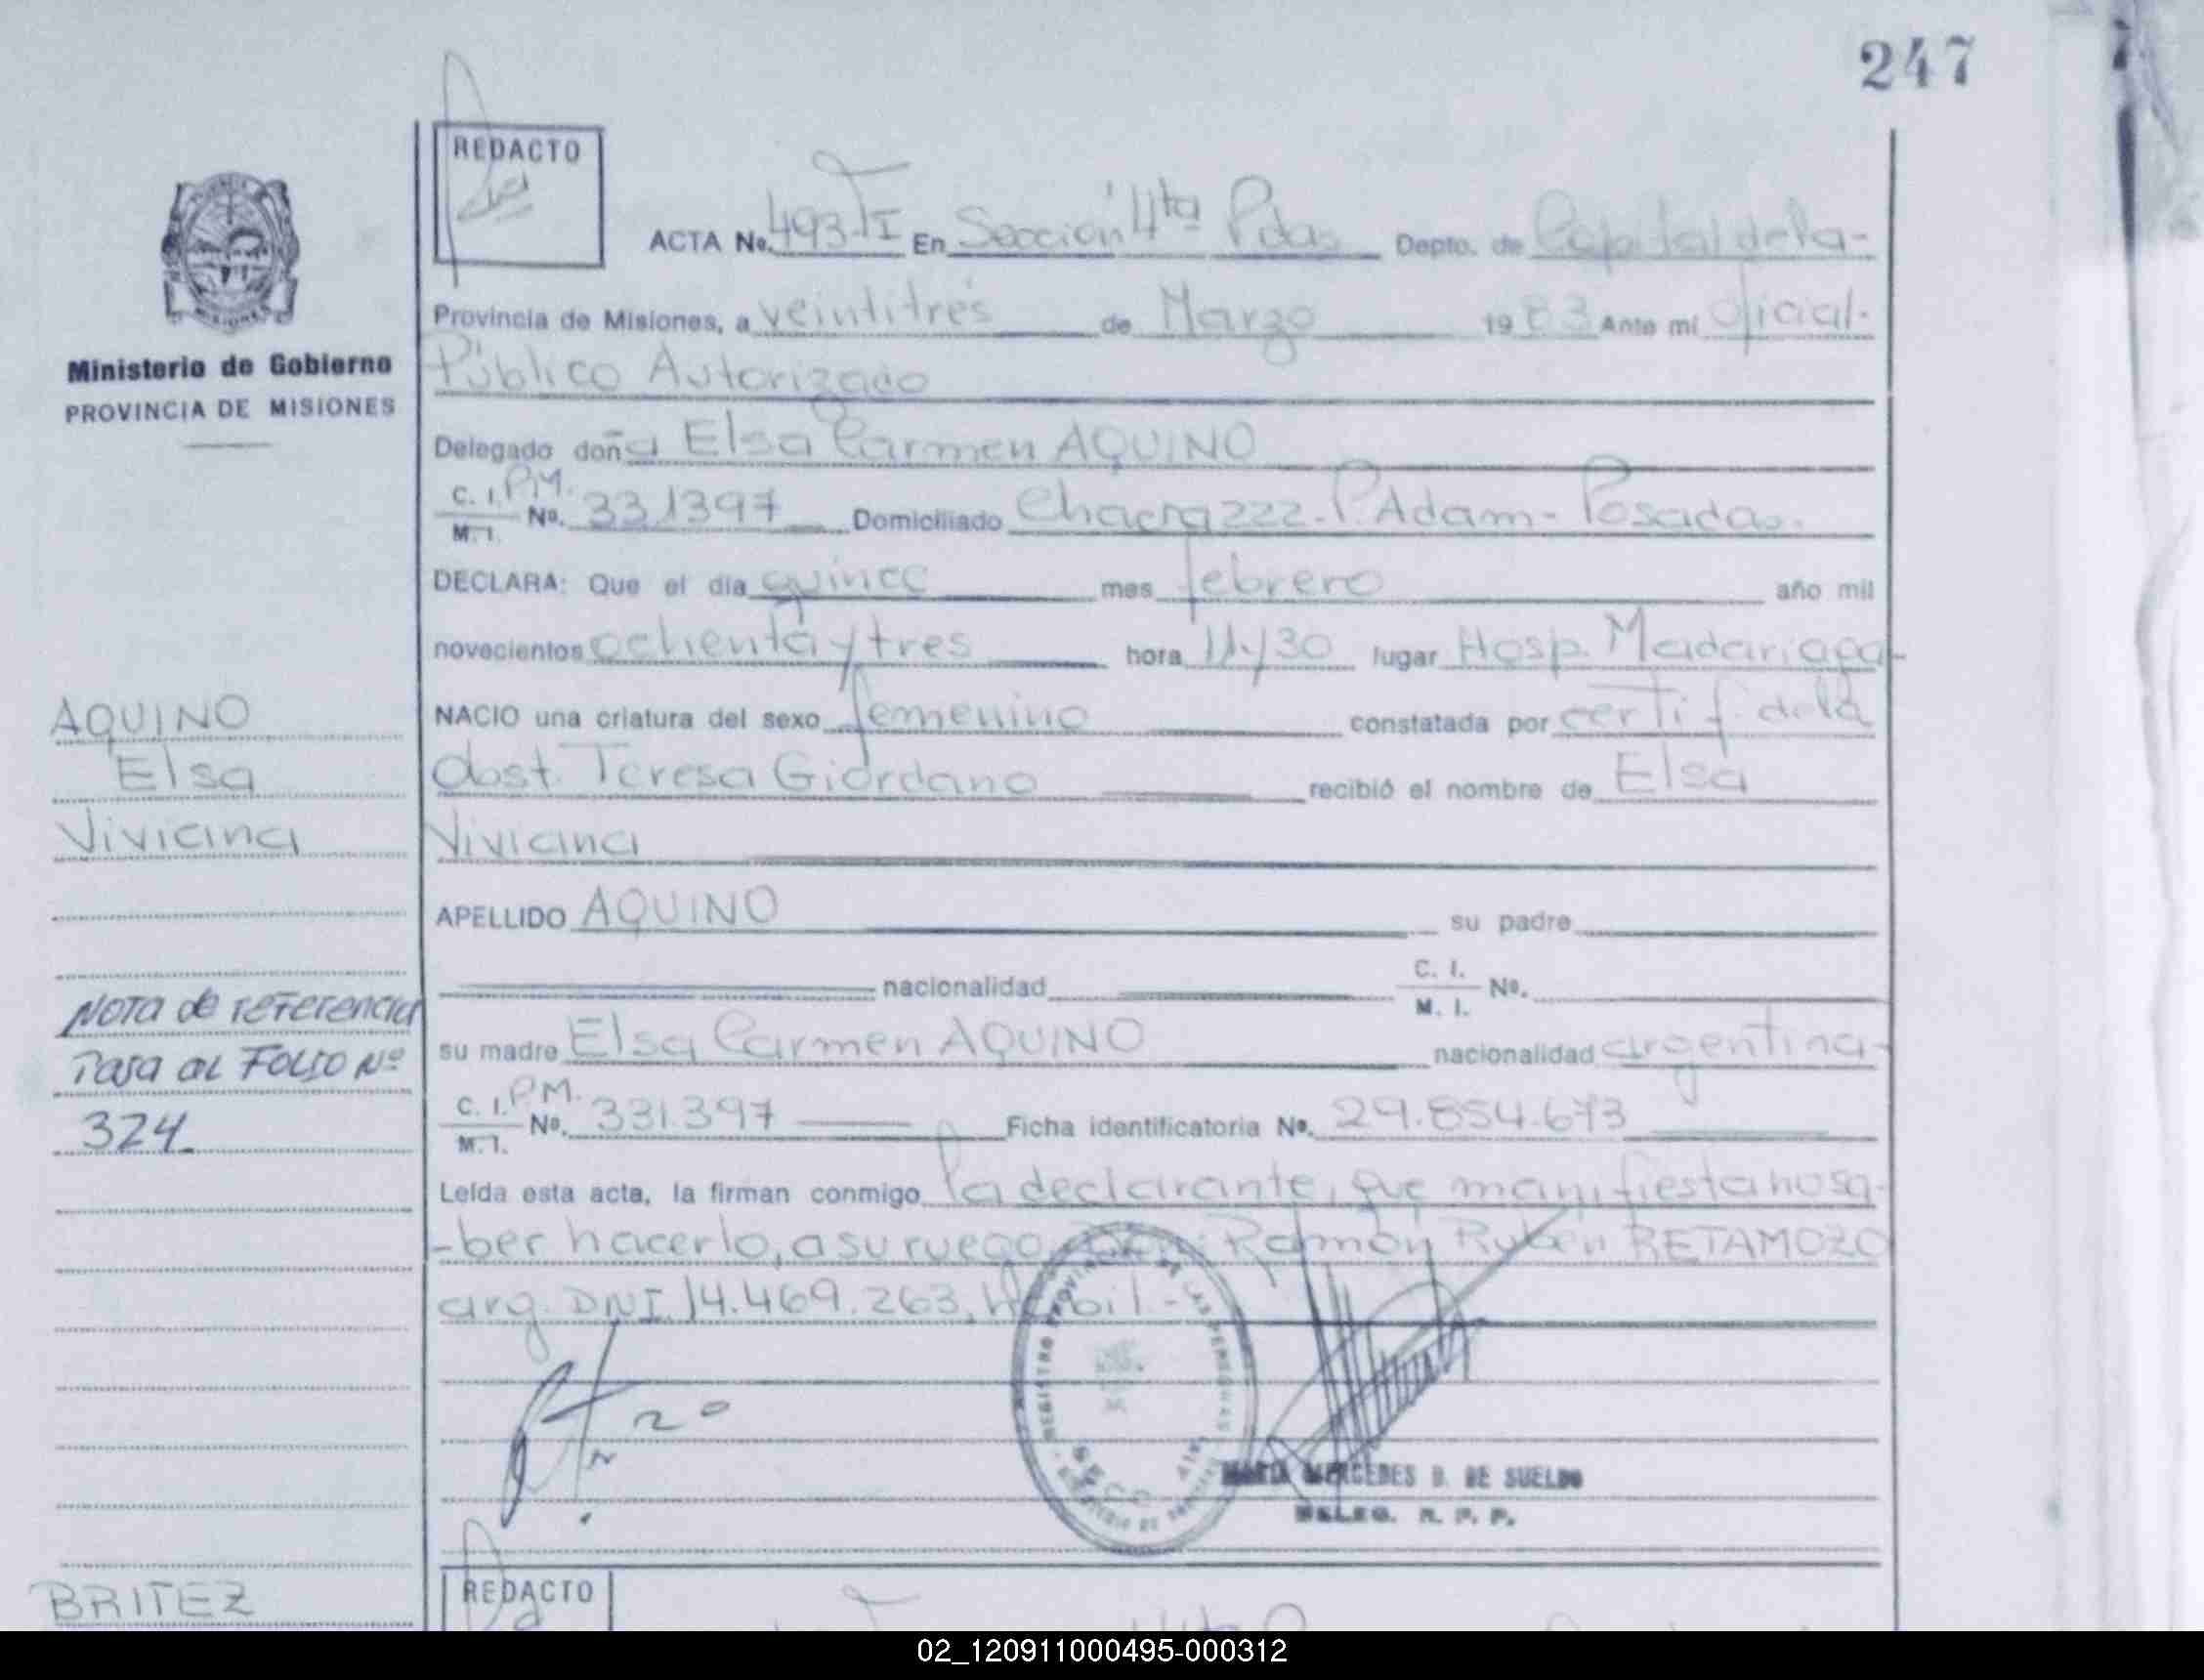 247
REDACTO
ACTA No. 493-TI En Sección 4ta Pdas Depto. de Capital de la-
Provincia de Misiones, a veintitrés de Marzo 1983 Ante mí oficial-
Ministerio de Gobierno
PROVINCIA DE MISIONES
Público Autorizado
Delegado doña Elsa Carmen AQUINO
C. I. P.M.
M. I. No. 331397 Domiciliado Chacra 222-P. Adam-Posadas.
DECLARA: Que el día quince mes febrero año mil
novecientos ochenta y tres hora 11y30 lugar Hosp. Madariaga-
AQUINO
NACIO una criatura del sexo femenino constatada por certif. de la
Elsa
Obst. Teresa Giordano recibió el nombre de Elsa
Viviana
Viviana
APELLIDO AQUINO su padre
nacionalidad C. I. M. I. No.
Nota de referencia
Pasa al Folio Nº
324
su madre Elsa Carmen AQUINO nacionalidad argentina-
C. I. P.M.
M. I. No. 331.397 Ficha identificatoria No. 29.854.673
Leída esta acta, la firman conmigo la declarante, que manifiesta no sa-
-ber hacerlo, a su ruego Don: Ramón Rubén RETAMOZO
arg. DNI. 14.469.263, Hábil-
REGISTRO PROVINCIAL DE LAS PERSONAS
MARIA MERCEDES D. DE SUELDO
DELEG. R. P. P.
BRITEZ
REDACTO
02_120911000495-000312